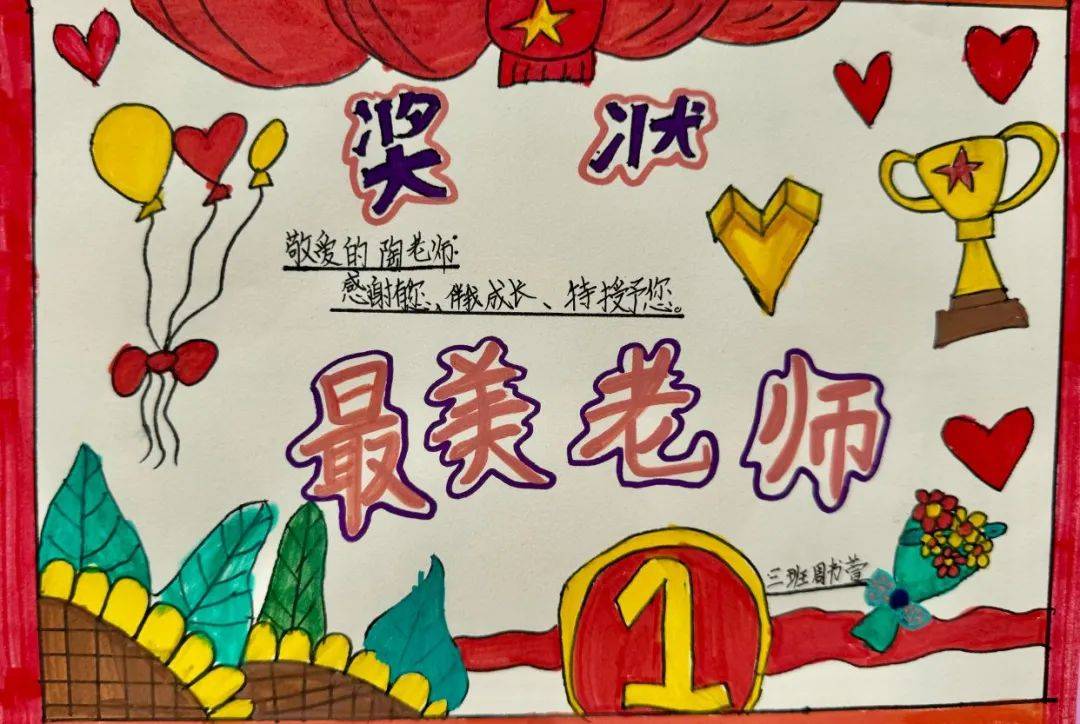 奖状
敬爱的陶老师:
感谢有您、伴我成长、特授予您。
最美老师
三班周书萱
1